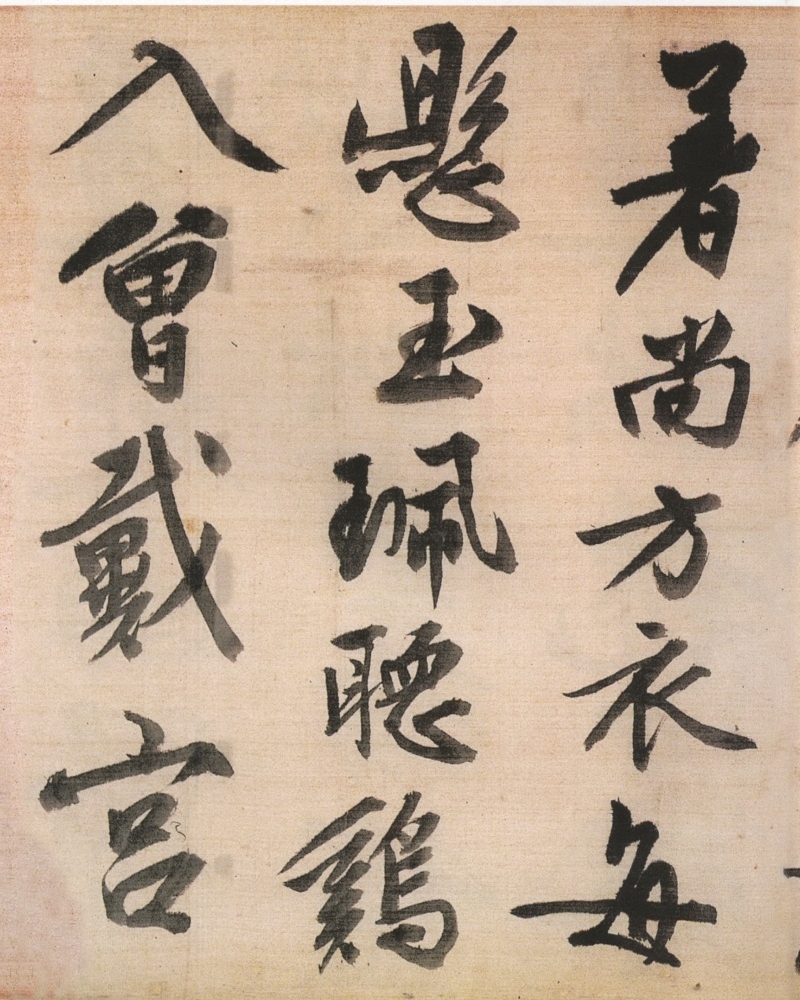 著尚方衣每
懸玉珮聽鷄
入曾戴宮